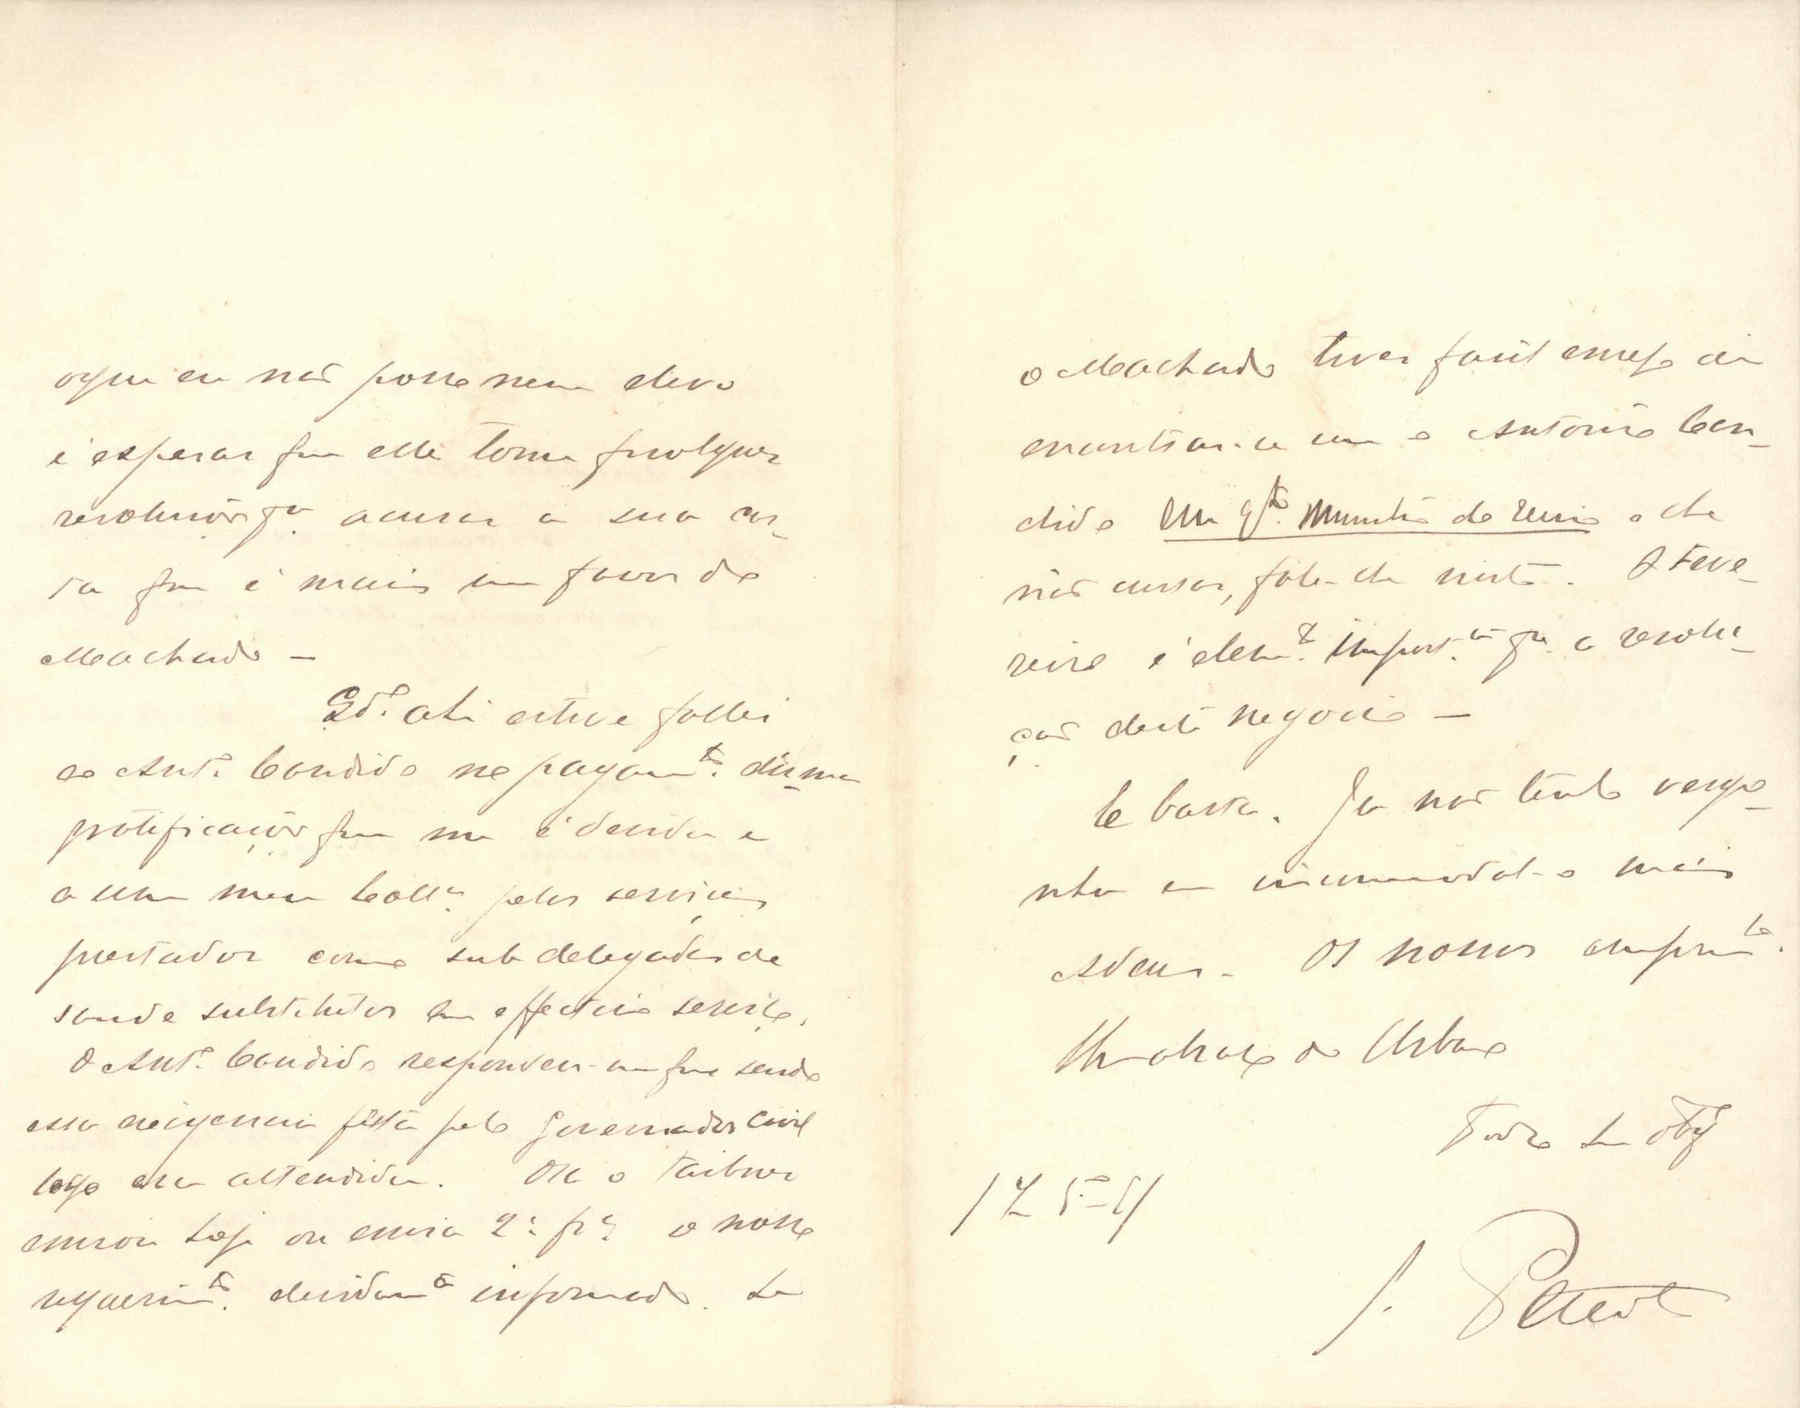 o que eu não posso nem devo
é esperar que elle tome qualquer
resolução p.ª accusar a sua car-
ta que é mais um favor do
Machado —
Qd.º ahi estive fallei
ao Ant.º Candido no pagam.to d'uma
gratificação que me é devida e
a um meu Coll.ª pelos serviços
prestados como sub delegados de
saude substitutos em effectivo serviço.
O Ant.º Candido respondeu-me que sendo
essa exigencia feita pelo Governador Civil
logo era attendida. Ora o
enviou hoje ou envia 2.ª fr.ª o nosso
requerim.to devidam.te informado. Se
o Machado tiver facil ensejo de
encontrar-se com o Antonio Can-
dido em q.to Ministro do reino e
não cursar, fale-lhe nisto. O Feve-
reiro é elem.to import.te p.ª a resolu-
ção deste negocio —
E basta. Ja não tenho vergo-
nha em incommodal-o mais
Adeus. Os nossos cumprim.tos
Um abraço do Urbano
Todo seu obg
17 5.º - 91
J.